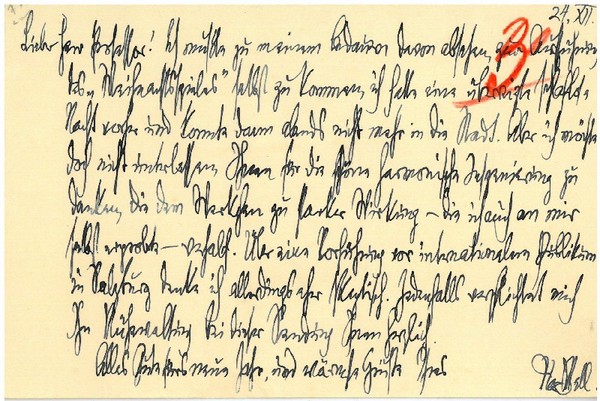 24. XII.
3
Lieber Herr Professor! Ich mußte zu meinem Bedauern davon absehen, zur Aufführung
des „Weihnachtsspieles" selbst zu kommen, ich hatte eine
Nacht vorher und konnte dann abends nicht mehr in die Stadt. Aber ich möchte
doch nicht unterlassen, Ihnen für die schöne harmonische Inszenierung zu
danken, die dem Werkchen zu starker Wirkung – die ich auch an mir
selbst erprobte – verhalf. Über eine Vorführung vor internationalem Publikum
in Salzburg denke ich allerdings eher skeptisch. Jedenfalls verpflichtet mich
Ihre Mühewaltung bei dieser Sendung Ihnen herzlich.
Alles Gute fürs neue Jahr, und wärmste Grüße Ihres
Max Mell.